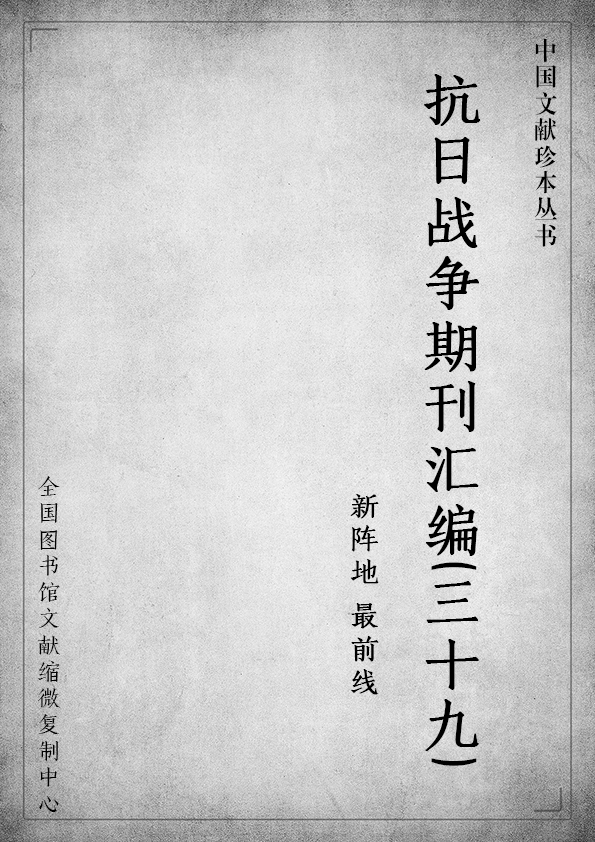 中国文献珍本丛书
抗日战争期刊汇编(三十九)
新阵地 最前线
全国图书馆文献缩微复制中心